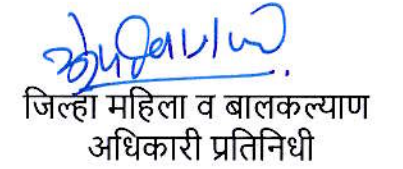 जिल्हा महिला व बालकल्याण
अधिकारी प्रतिनिधी